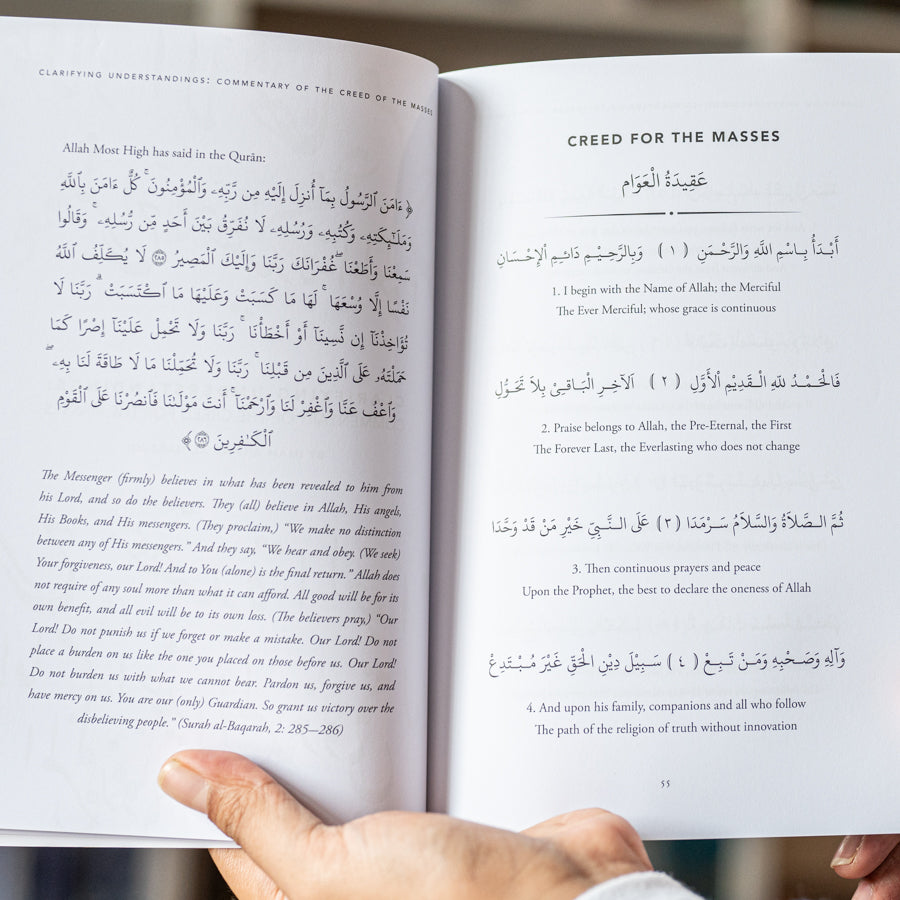 CLARIFYING UNDERSTANDINGS: COMMENTARY OF THE CREED OF THE MASSES
Allah Most High has said in the Qurân:
﴿ ءَامَنَ ٱلرَّسُولُ بِمَآ أُنزِلَ إِلَيْهِ مِن رَّبِّهِۦ وَٱلْمُؤْمِنُونَ ۚ كُلٌّ ءَامَنَ بِٱللَّهِ
وَمَلَٰٓئِكَتِهِۦ وَكُتُبِهِۦ وَرُسُلِهِۦ لَا نُفَرِّقُ بَيْنَ أَحَدٍ مِّن رُّسُلِهِۦ ۚ وَقَالُوا۟
سَمِعْنَا وَأَطَعْنَا ۖ غُفْرَانَكَ رَبَّنَا وَإِلَيْكَ ٱلْمَصِيرُ ﴿٢٨٥﴾ لَا يُكَلِّفُ ٱللَّهُ
نَفْسًا إِلَّا وُسْعَهَا ۚ لَهَا مَا كَسَبَتْ وَعَلَيْهَا مَا ٱكْتَسَبَتْ ۗ رَبَّنَا لَا
تُؤَاخِذْنَآ إِن نَّسِينَآ أَوْ أَخْطَأْنَا ۚ رَبَّنَا وَلَا تَحْمِلْ عَلَيْنَآ إِصْرًا كَمَا
حَمَلْتَهُۥ عَلَى ٱلَّذِينَ مِن قَبْلِنَا ۚ رَبَّنَا وَلَا تُحَمِّلْنَا مَا لَا طَاقَةَ لَنَا بِهِۦ ۖ
وَٱعْفُ عَنَّا وَٱغْفِرْ لَنَا وَٱرْحَمْنَآ ۚ أَنتَ مَوْلَىٰنَا فَٱنصُرْنَا عَلَى ٱلْقَوْمِ
ٱلْكَٰفِرِينَ ﴿٢٨٦﴾ ﴾
The Messenger (firmly) believes in what has been revealed to him from
his Lord, and so do the believers. They (all) believe in Allah, His angels,
His Books, and His messengers. (They proclaim,) “We make no distinction
between any of His messengers.” And they say, “We hear and obey. (We seek)
Your forgiveness, our Lord! And to You (alone) is the final return.” Allah does
not require of any soul more than what it can afford. All good will be for its
own benefit, and all evil will be to its own loss. (The believers pray,) “Our
Lord! Do not punish us if we forget or make a mistake. Our Lord! Do not
place a burden on us like the one you placed on those before us. Our Lord!
Do not burden us with what we cannot bear. Pardon us, forgive us, and
have mercy on us. You are our (only) Guardian. So grant us victory over the
disbelieving people.” (Surah al-Baqarah, 2: 285—286)
CREED FOR THE MASSES
عَقِيدَةُ الْعَوَام
أَبْدَأُ بِاسْمِ اللَّهِ وَالرَّحْمَنِ ( ١ ) وَبِالرَّحِيْمِ دَائِمِ الْإِحْسَانِ
1. I begin with the Name of Allah; the Merciful
The Ever Merciful; whose grace is continuous
فَالْحَمْدُ للهِ الْقَدِيْمِ الْأَوَّلِ ( ٢ ) اَلآخِرِ الْبَاقِيْ بِلاَ تَحَوُّلِ
2. Praise belongs to Allah, the Pre-Eternal, the First
The Forever Last, the Everlasting who does not change
ثُمَّ الصَّلاَةُ وَالسَّلاَمُ سَرْمَدَا ( ٣ ) عَلَى النَّبِيِّ خَيْرِ مَنْ قَدْ وَحَّدَا
3. Then continuous prayers and peace
Upon the Prophet, the best to declare the oneness of Allah
وَآلِهِ وَصَحْبِهِ وَمَنْ تَبِعْ ( ٤ ) سَبِيْلَ دِيْنِ الْحَقِّ غَيْرَ مُبْتَدِعْ
4. And upon his family, companions and all who follow
The path of the religion of truth without innovation
55